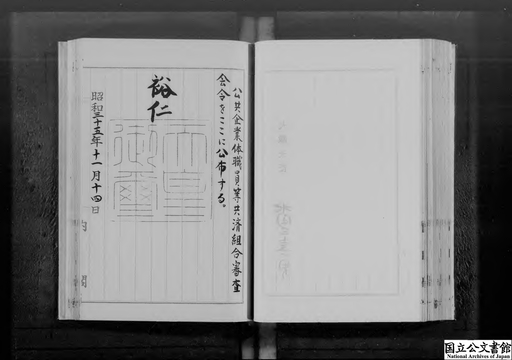 公共企業体職員等共済組合審査
会令をここに公布する。
裕仁
天皇
御璽
昭和三十五年十一月十四日
内閣
国立公文書館
National Archives of Japan